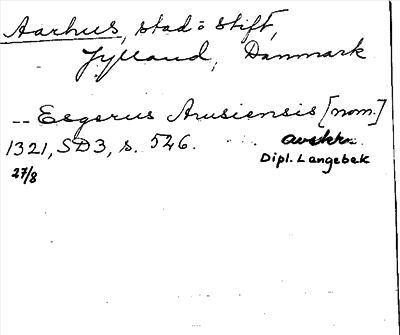 Aarhus, stad o stift,
Jylland, Danmark
-- Esgerus Arusiensis [nom.]
1321, SD3, s. 526. avskr.
Dipl. Langebek
27/8